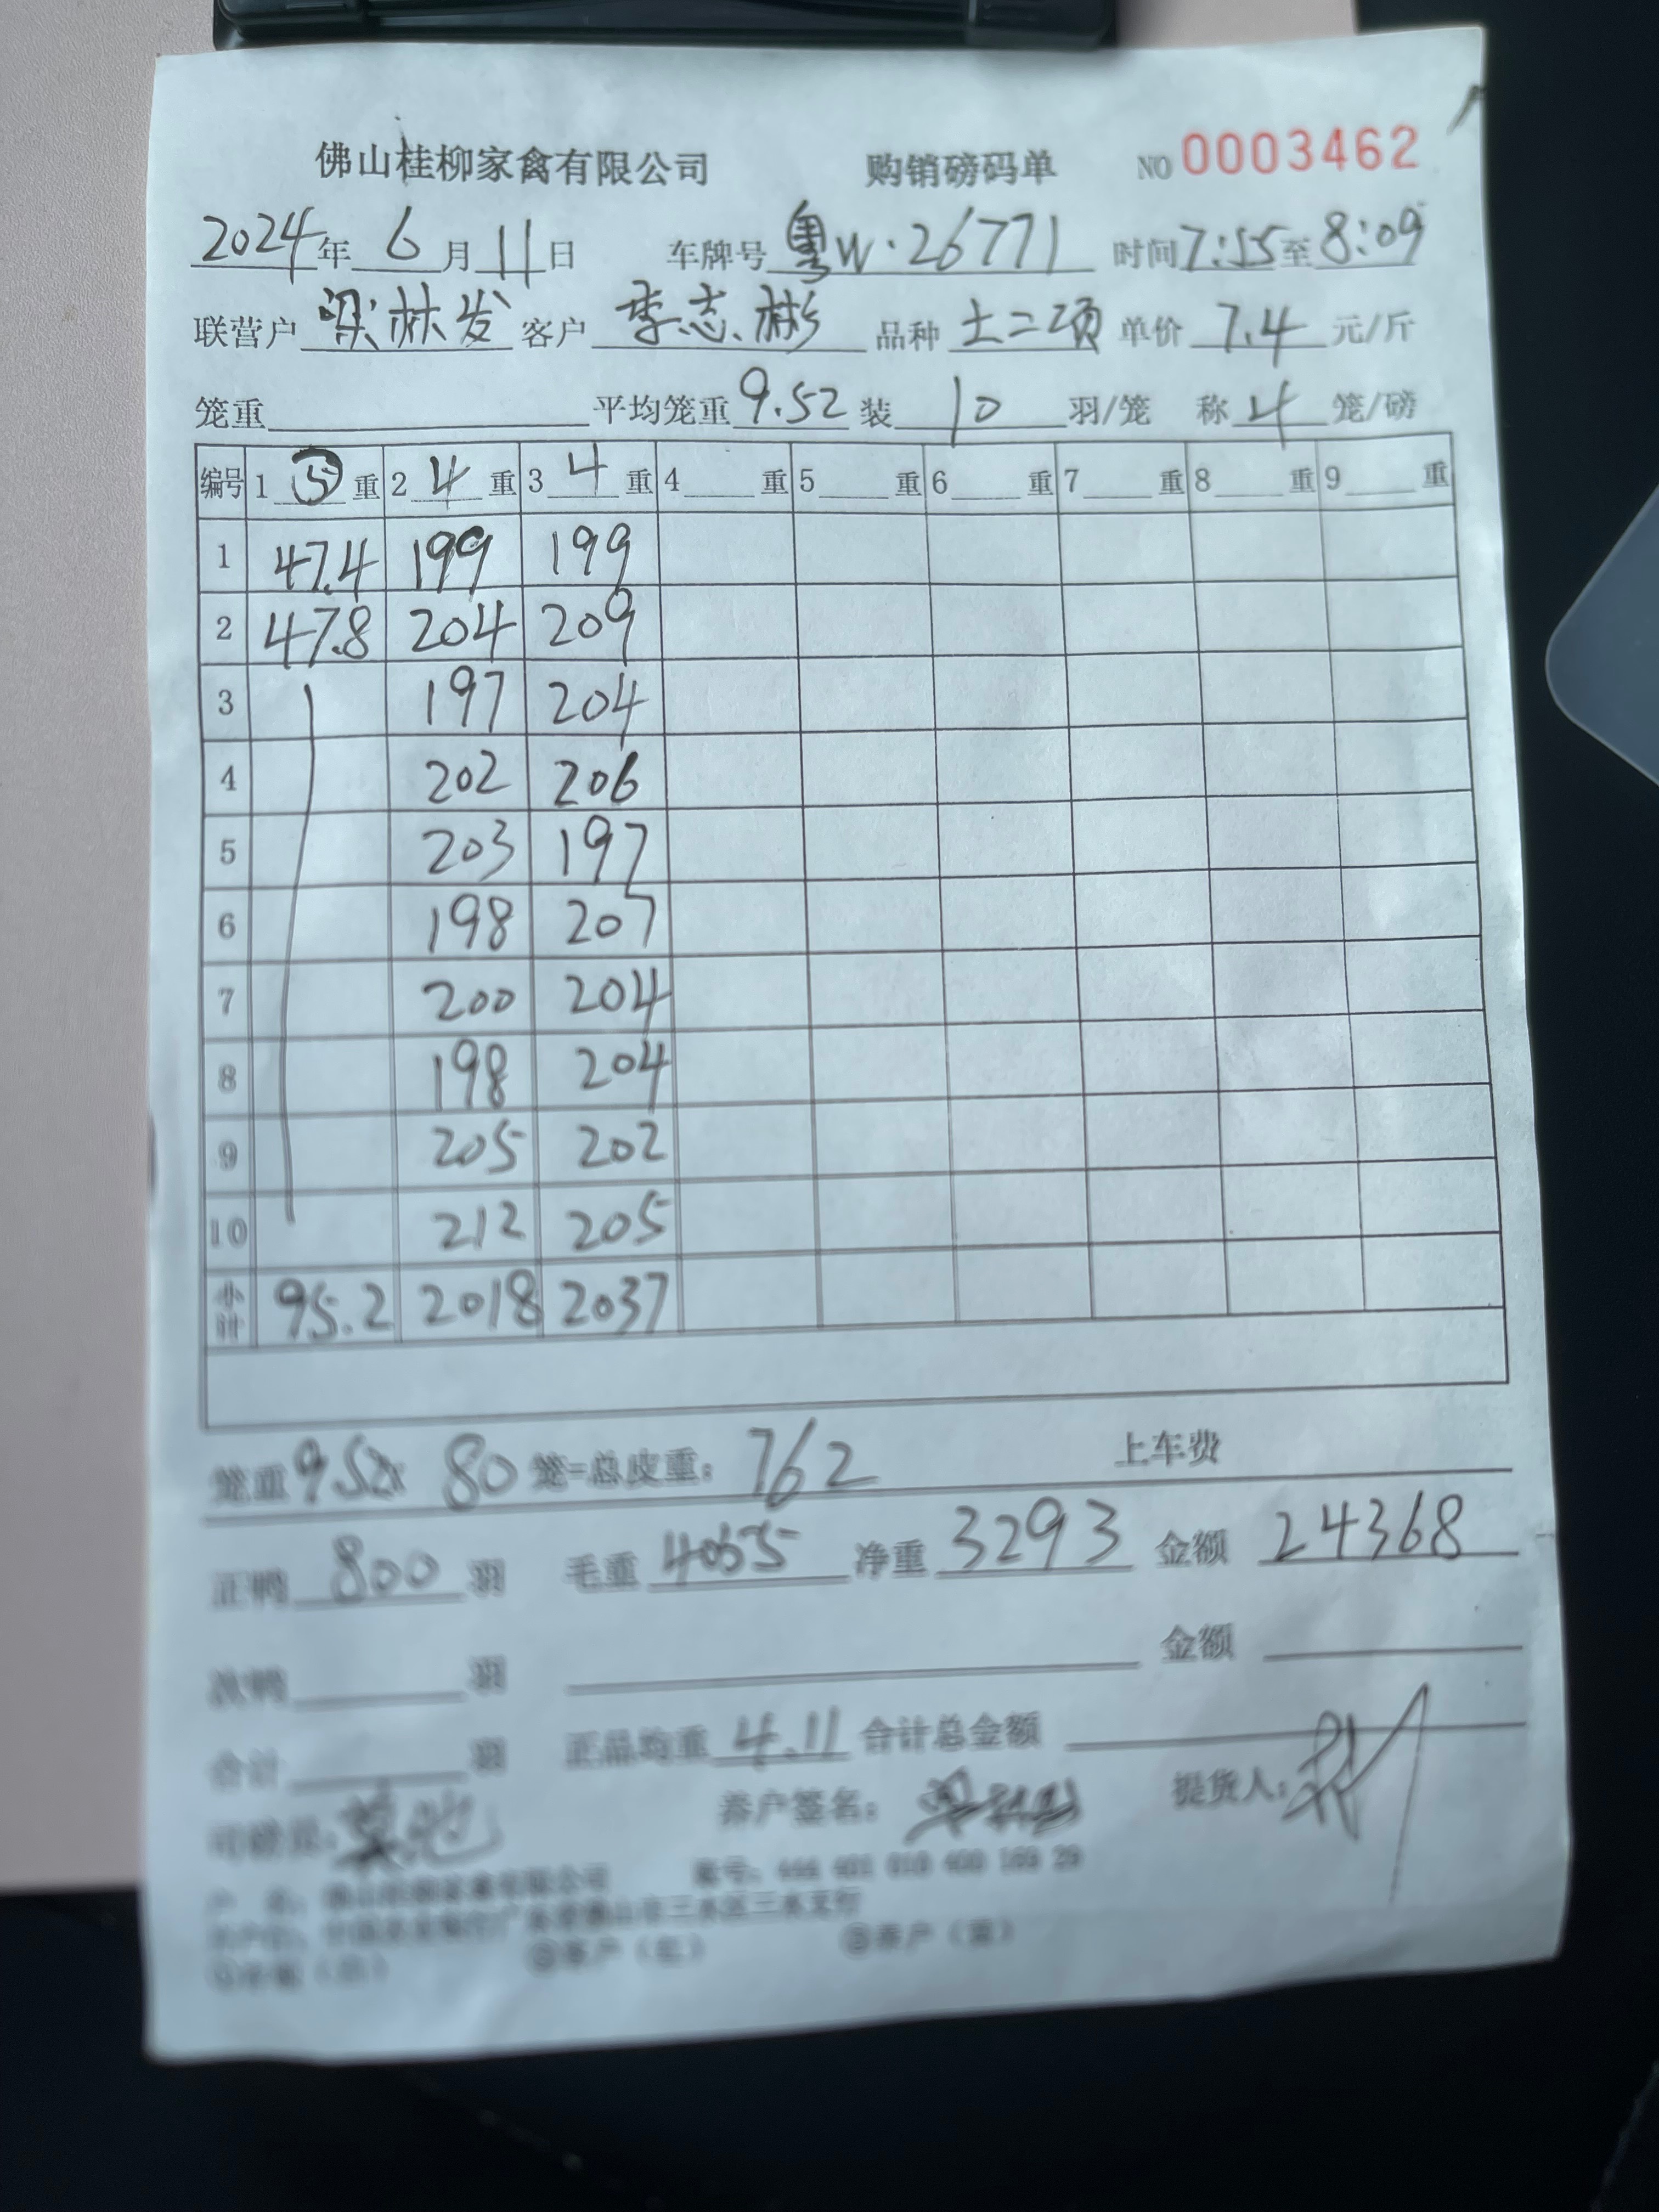 佛山桂柳家禽有限公司 购销磅码单 NO 0003462
2024年 6月11日 车牌号 粤W·26771 时间7:55至8:09
联营户 梁林发 客户 李志彬 品种 土二项 单价 7.4 元/斤
笼重 平均笼重 9.52 装 10 羽/笼 称 4 笼/磅
编号 1 ⑤ 重 2 4 重 3 4 重 4 重 5 重 6 重 7 重 8 重 9 重
1 47.4 199 199
2 47.8 204 209
3 197 204
4 202 206
5 203 197
6 198 207
7 200 204
8 198 204
9 205 202
10 212 205
小计 95.2 2018 2037
笼重 9.52x 80 笼=总皮重: 762 上车费
正鸭 800 羽 毛重 4055 净重 3293 金额 24368
次鸭 羽 金额
合计 羽 正品均重 4.11 合计总金额
司磅员: 养户签名: 提货人:
户 名: 佛山桂柳家禽有限公司 账号: